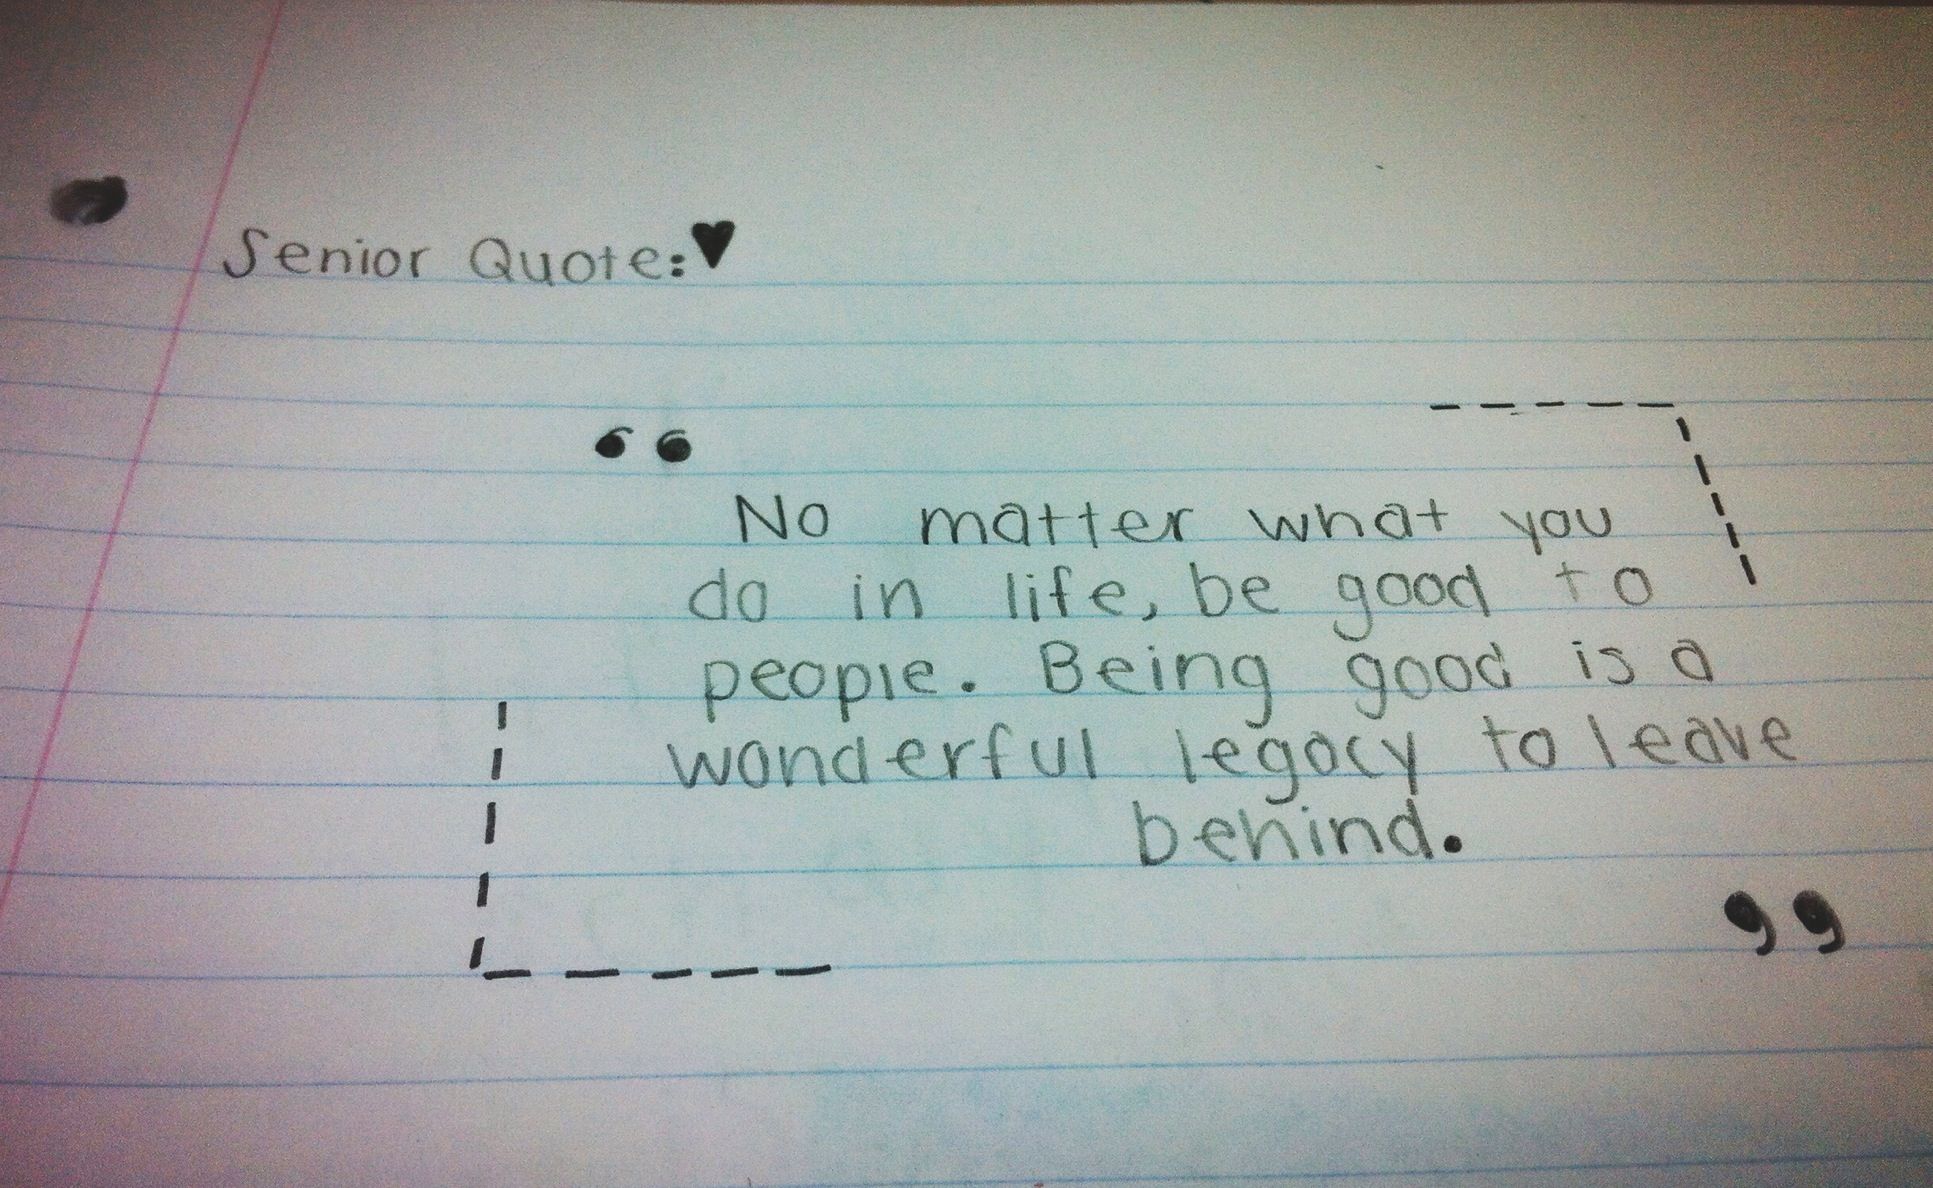 Senior Quote:♥
“
No matter what you
do in life, be good to
people. Being good is a
wonderful legacy to leave
behind.
”